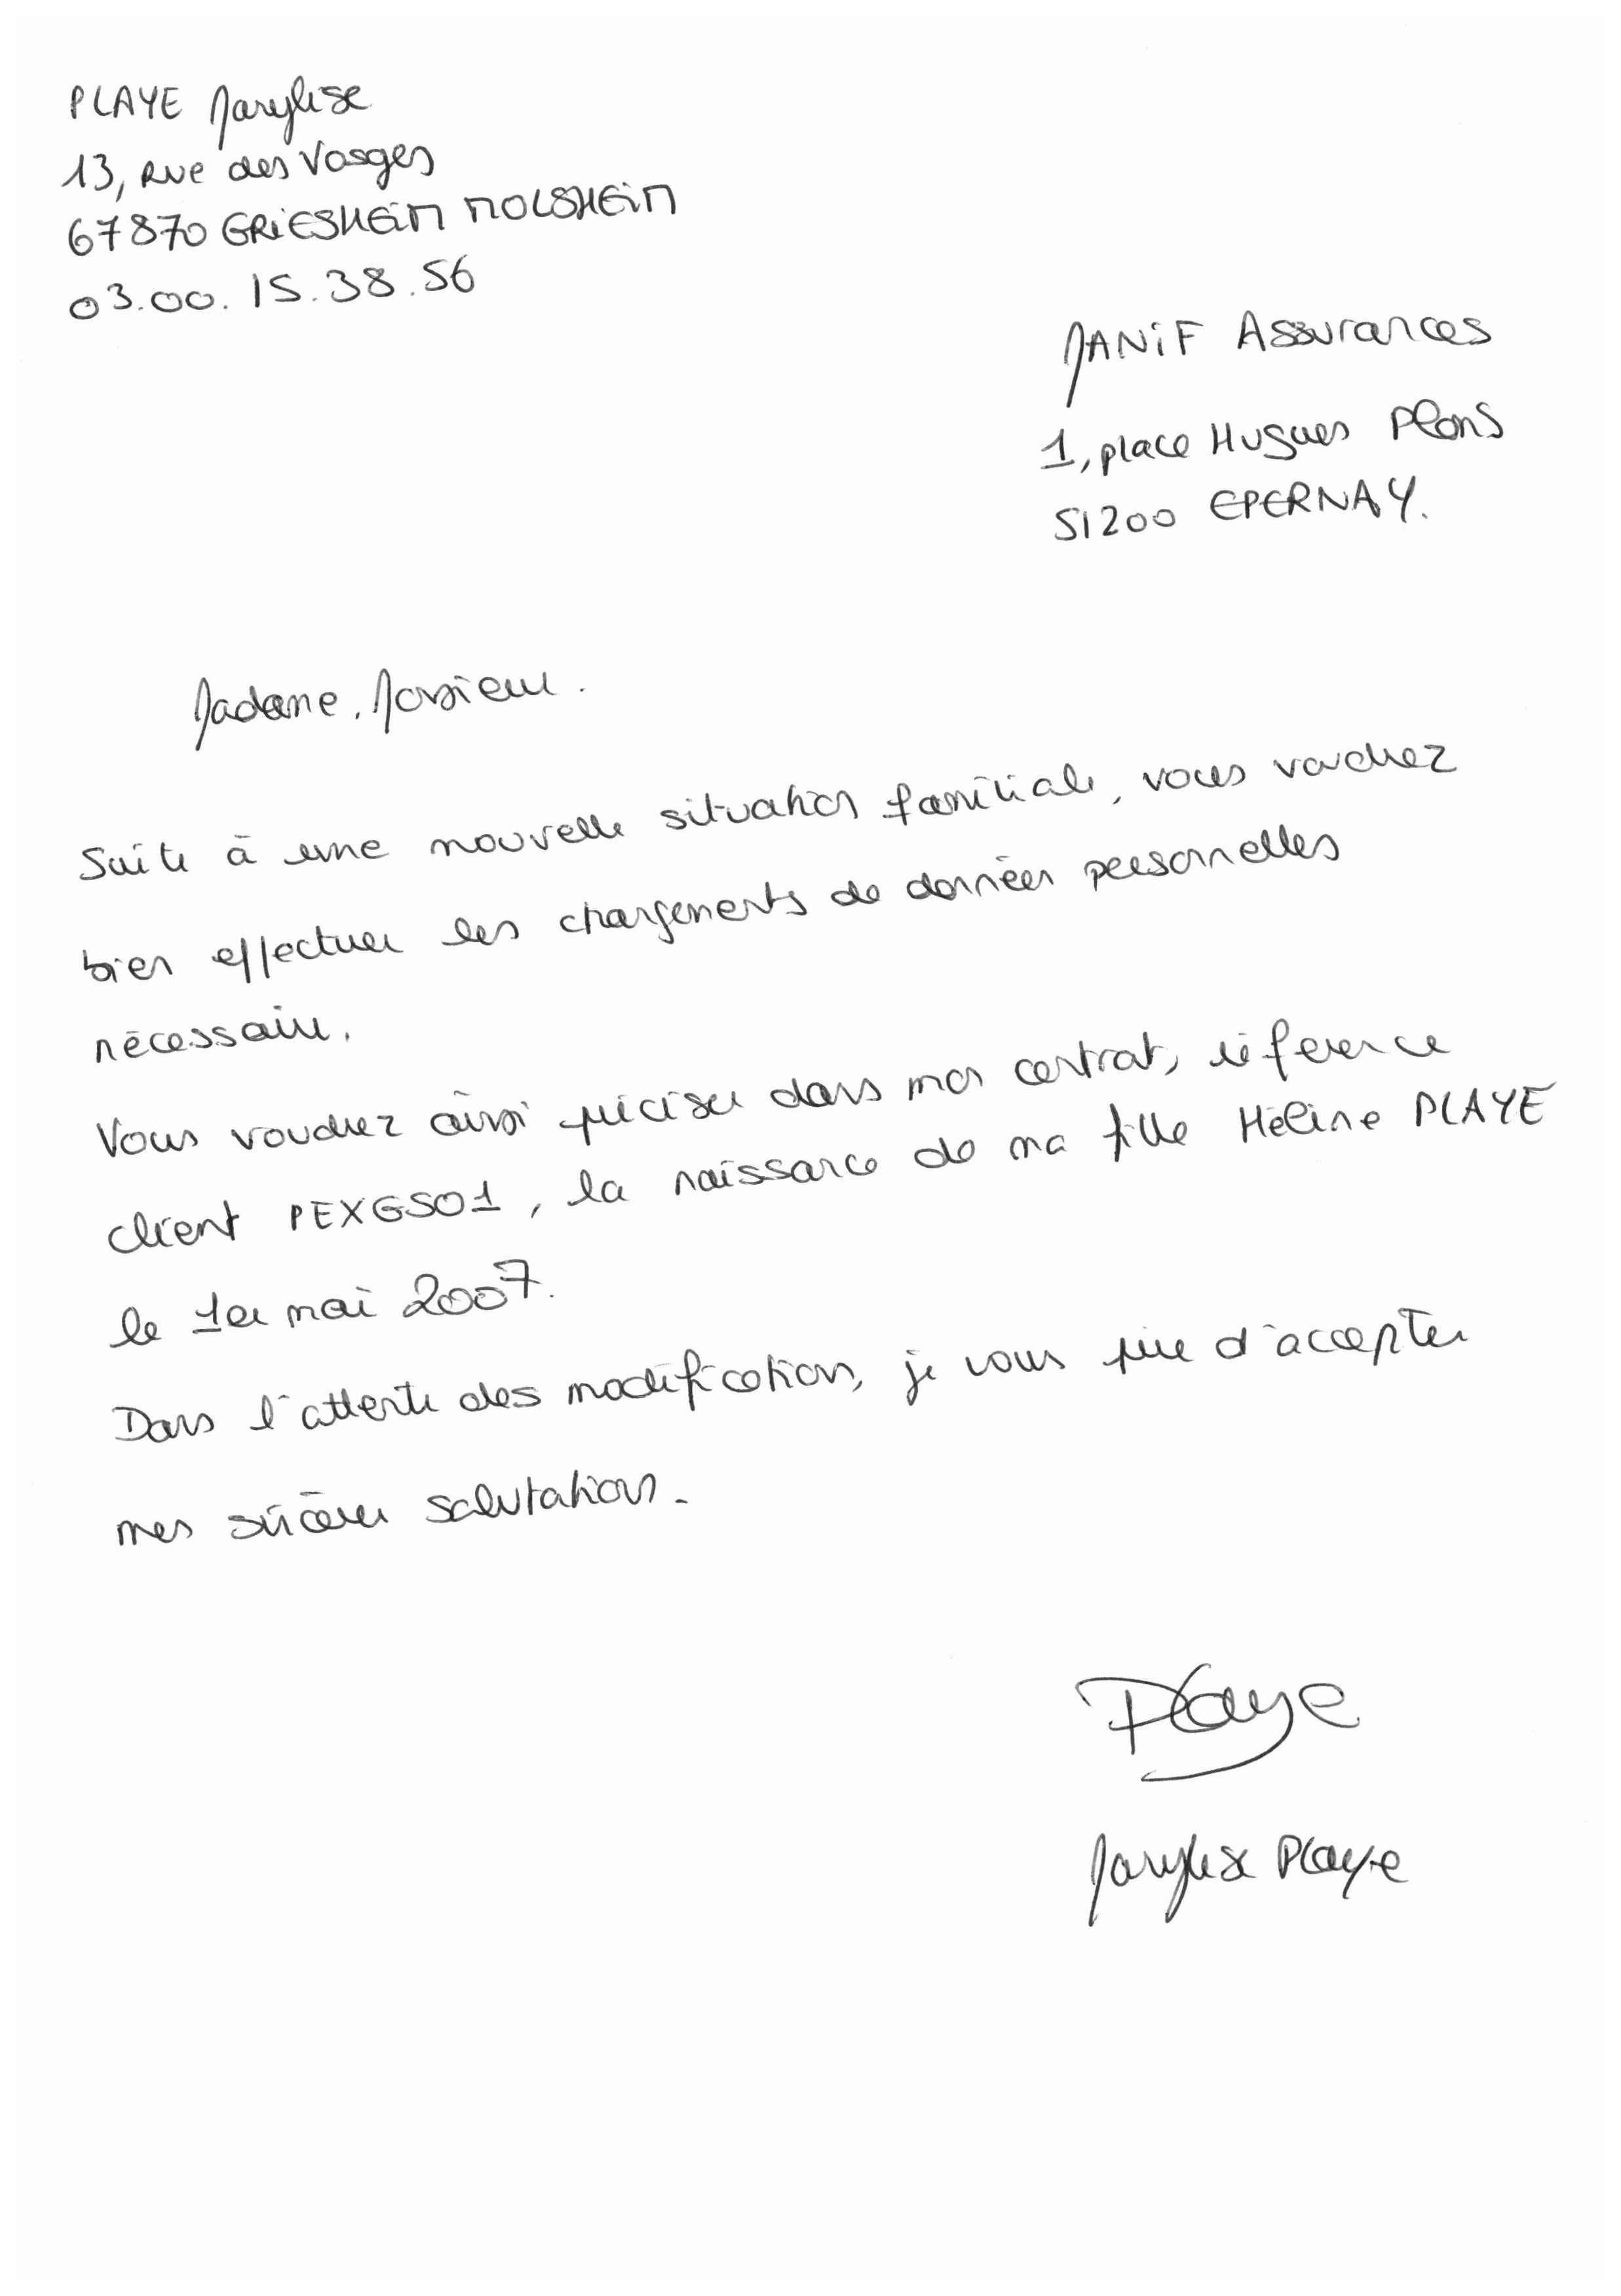 PLAYE Marylise
13, Rue des Vosges
67870 GRIESHEIM MOLSHEIM
03.00.15.38.56
MANIF Assurances
1, place Hugues Plons
51200 EPERNAY.
Madame, Monsieur.
Suite à une nouvelle situation familiale, vous voudrez
bien effectuer les changements de données personnelles
nécessaire.
Vous voudrez ainsi préciser dans mon contrat, référence
client PEXGS01, la naissance de ma fille Hélène PLAYE
le 1er mai 2007.
Dans l'attente des modifications, je vous prie d'accepter
mes sincères salutations.
Playe
Marylise Playe